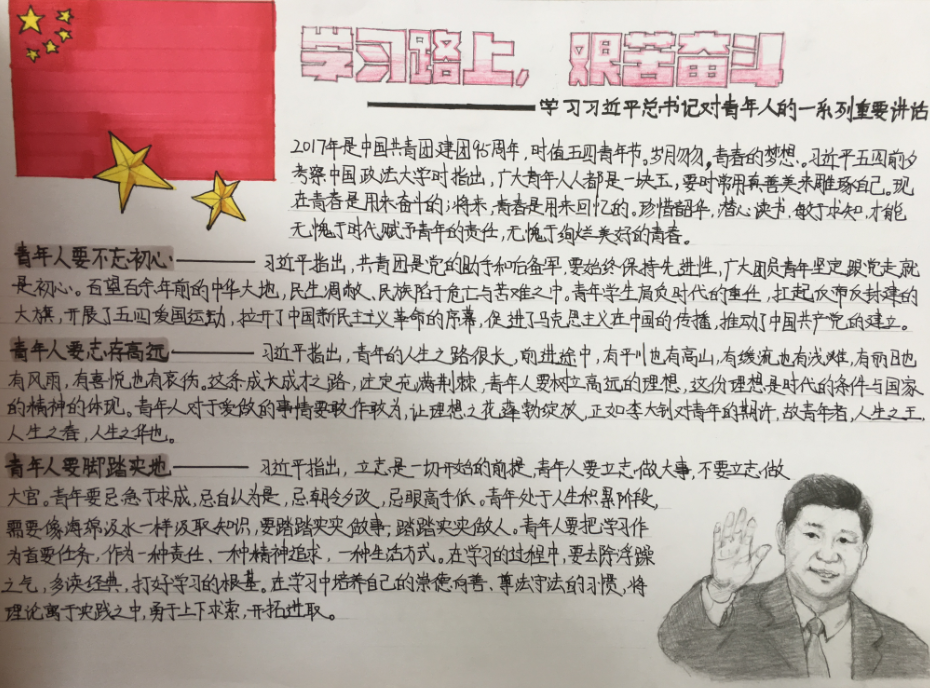 学习路上，艰苦奋斗
——学习习近平总书记对青年人的一系列重要讲话
2017年是中国共青团建团95周年，时值五四青年节。岁月匆匆，青春的梦想。习近平五四前夕
考察中国政法大学时指出，广大青年人人都是一块玉，要时常用真善美来雕琢自己。现
在青春是用来奋斗的；将来，青春是用来回忆的。珍惜韶华，潜心读书，敏于求知，才能
无愧于时代赋予青年的责任，无愧于绚烂美好的青春。
青年人要不忘初心——习近平指出，共青团是党的助手和后备军，要始终保持先进性，广大团员青年坚定跟党走就
是初心。百望百余年前的中华大地，民生凋敝、民族陷于危亡与苦难之中。青年学生肩负时代的重任，扛起反帝反封建的
大旗，开展了五四爱国运动，拉开了中国新民主主义革命的序幕，促进了马克思主义在中国的传播，推动了中国共产党的建立。
青年人要志存高远——习近平指出，青年的人生之路很长，前进途中，有平川也有高山，有缓流也有浅滩，有丽日也
有风雨，有喜悦也有哀伤。这条成长成才之路，注定充满荆棘，青年人要树立高远的理想，这份理想是时代的条件与国家
的精神的体现。青年人对于爱做的事情要敢作敢为，让理想之花蓬勃绽放，正如李大钊对青年的期许，故青年者，人生之王，
人生之春，人生之华也。
青年人要脚踏实地——习近平指出，立志是一切开始的前提，青年人要立志做大事，不要立志做
大官。青年要忌急于求成，忌自认为是，忌朝令夕改，忌眼高手低。青年处于人生积累阶段，
需要像海绵汲水一样汲取知识，要踏踏实实做事，踏踏实实做人。青年人要把学习作
为首要任务，作为一种责任、一种精神追求，一种生活方式。在学习的过程中，要去除浮躁
之气，多读经典，打好学习的根基。在学习中培养自己的崇德向善、尊法守法的习惯，将
理论寓于实践之中，勇于上下求索，开拓进取。